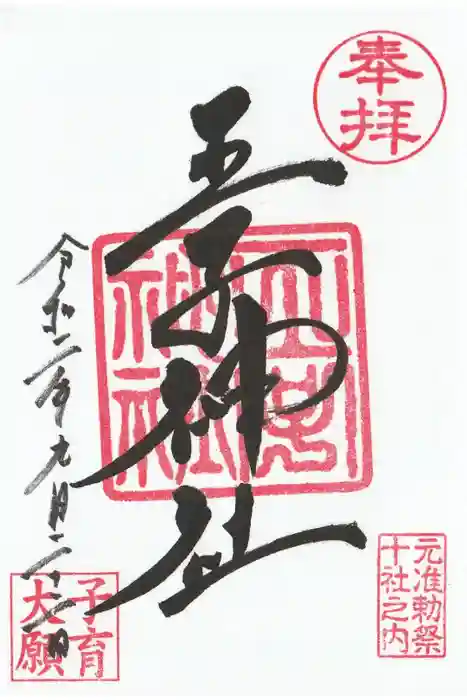 奉拝
王子神社
令和二年九月二十二日
元准勅祭
十社之内
子育
大願